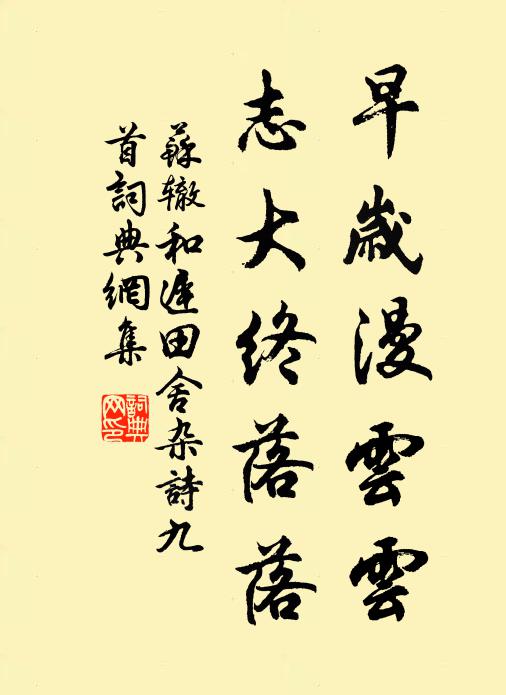 早歲漫雲雲
志大終落落
蘇辙和遲田舍杂詩九
首詞典網集
詞典
网印